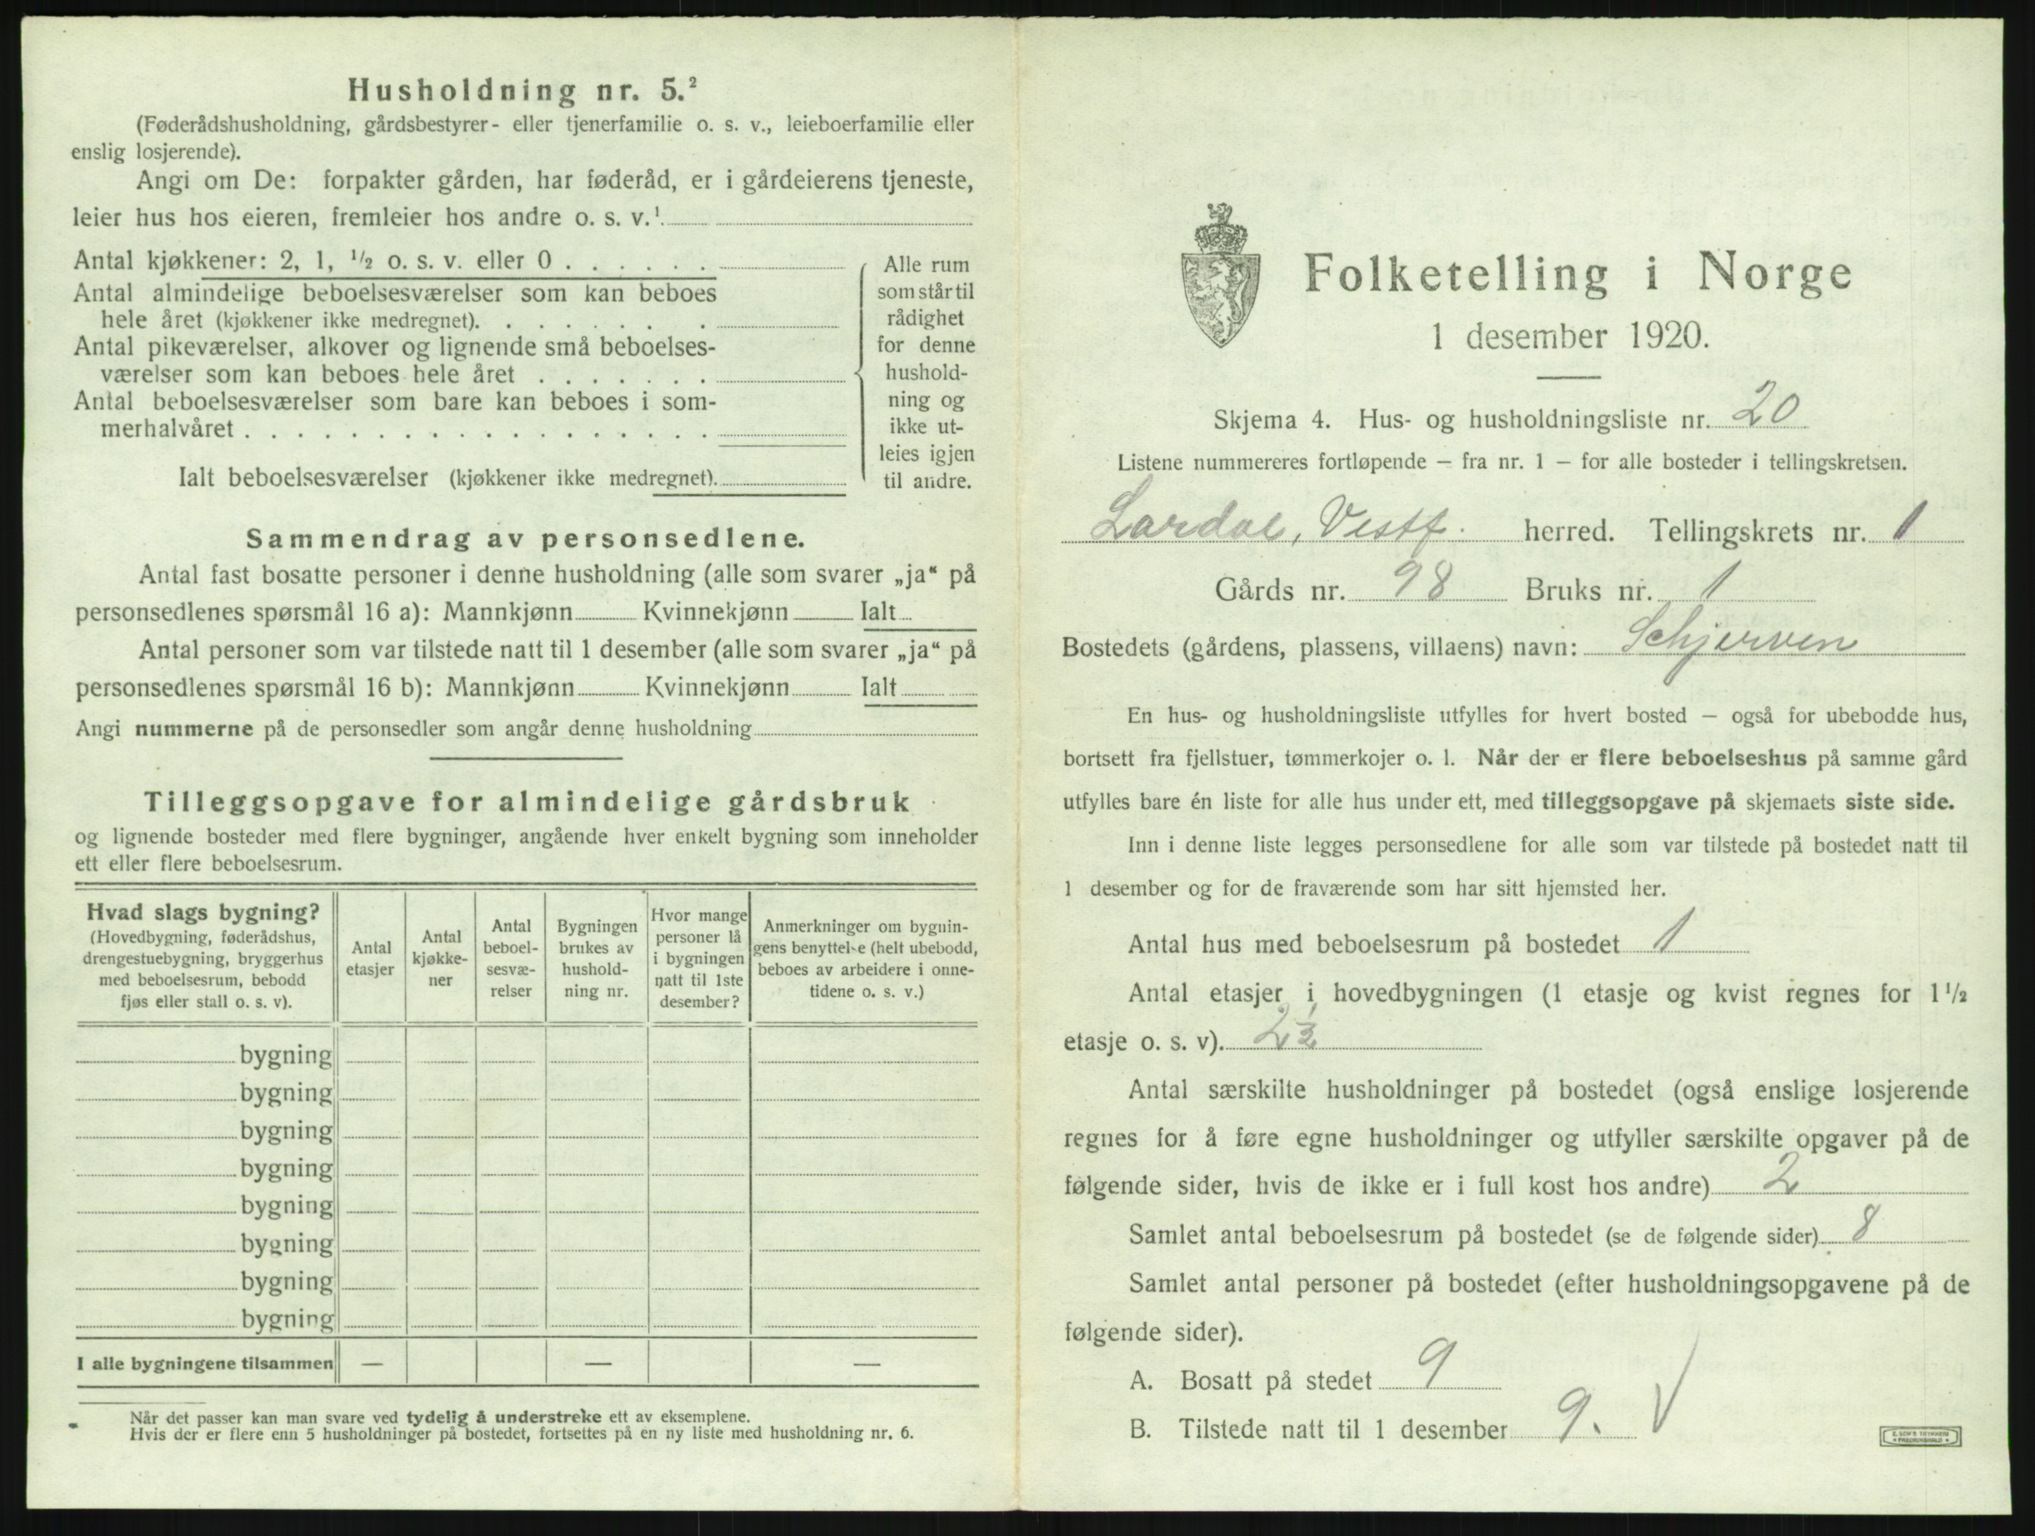 Husholdning nr. 5.²
(Føderådshusholdning, gårdsbestyrer- eller tjenerfamilie o. s. v., leieboerfamilie eller
enslig losjerende).
Angi om De: forpakter gården, har føderåd, er i gårdeierens tjeneste,
leier hus hos eieren, fremleier hos andre o. s. v.¹
Antal kjøkkener: 2, 1, ½ o. s. v. eller 0 . . . . . .
Antal almindelige beboelsesværelser som kan beboes
hele året (kjøkkener ikke medregnet). . . . . . . . .
Antal pikeværelser, alkover og lignende små beboelses-
værelser som kan beboes hele året . . . . . . .
Antal beboelsesværelser som bare kan beboes i som-
merhalvåret . . . . . . . . . . . . . . . . . .
Ialt beboelsesværelser (kjøkkener ikke medregnet).
Alle rum
som står til
rådighet
for denne
hushold-
ning og
ikke ut-
leies igjen
til andre.
Sammendrag av personsedlene.
Antal fast bosatte personer i denne husholdning (alle som svarer „ja“ på
personsedlenes spørsmål 16 a): Mannkjønn Kvinnekjønn Ialt
Antal personer som var tilstede natt til 1 desember (alle som svarer „ja“ på
personsedlenes spørsmål 16 b): Mannkjønn Kvinnekjønn Ialt
Angi nummerne på de personsedler som angår denne husholdning
Tilleggsopgave for almindelige gårdsbruk
og lignende bosteder med flere bygninger, angående hver enkelt bygning som inneholder
ett eller flere beboelsesrum.
Hvad slags bygning?
(Hovedbygning, føderådshus,
drengestuebygning, bryggerhus
med beboelsesrum, bebodd
fjøs eller stall o. s. v).
Antal
etasjer
Antal
kjøkke-
ner
Antal
beboel-
sesvæ-
relser
Bygningen
brukes av
hushold-
ning nr.
Hvor mange
personer lå
i bygningen
natt til 1ste
desember?
Anmerkninger om bygnin-
gens benyttelse (helt ubebodd,
beboes av arbeidere i onne-
tidene o. s. v.)
bygning
bygning
bygning
bygning
bygning
bygning
bygning
bygning
I alle bygningene tilsammen — — —
Når det passer kan man svare ved tydelig å understreke ett av eksemplene.
Hvis der er flere enn 5 husholdninger på bostedet, fortsettes på en ny liste med husholdning nr. 6.
Folketelling i Norge
1 desember 1920.
Skjema 4. Hus- og husholdningsliste nr. 20
Listene nummereres fortløpende – fra nr. 1 – for alle bosteder i tellingskretsen.
Lardal, Vestf. herred. Tellingskrets nr. 1
Gårds nr. 98 Bruks nr. 1
Bostedets (gårdens, plassens, villaens) navn: Schjerven
En hus- og husholdningsliste utfylles for hvert bosted – også for ubebodde hus,
bortsett fra fjellstuer, tømmerkojer o. l. Når der er flere beboelseshus på samme gård
utfylles bare én liste for alle hus under ett, med tilleggsopgave på skjemaets siste side.
Inn i denne liste legges personsedlene for alle som var tilstede på bostedet natt til
1 desember og for de fraværende som har sitt hjemsted her.
Antal hus med beboelsesrum på bostedet 1
Antal etasjer i hovedbygningen (1 etasje og kvist regnes for 1½
etasje o. s. v). 2½
Antal særskilte husholdninger på bostedet (også enslige losjerende
regnes for å føre egne husholdninger og utfyller særskilte opgaver på de
følgende sider, hvis de ikke er i full kost hos andre) 2
Samlet antal beboelsesrum på bostedet (se de følgende sider) 8
Samlet antal personer på bostedet (efter husholdningsopgavene på de
følgende sider).
A. Bosatt på stedet 9
B. Tilstede natt til 1 desember 9. √